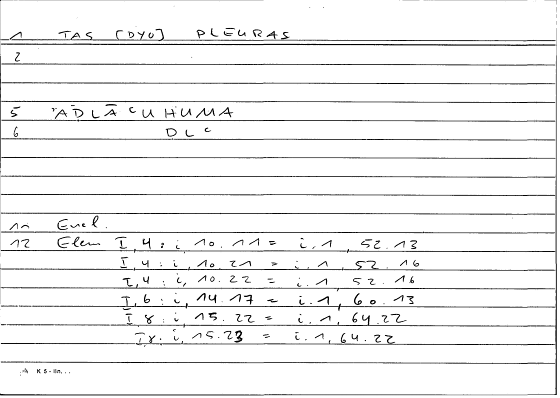 1 TAS [DYO] PLEURAS
2
5 ʾADLĀʿU HUMA
6 DLʿ
10 Eucl.
12 Elem I, 4 : i, 10.11 = i.1, 52.13
I, 4 : i, 10.21 = i.1, 52.16
I, 4 : i, 10.22 = i.1, 52.16
I, 6 : i, 14.17 = i.1, 60.13
I, 8 : i, 15.22 = i.1, 64.22
I 8 : i, 15.23 = i.1, 64.22